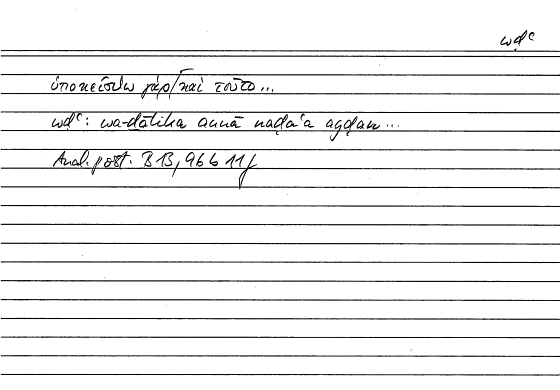 wḍʿ
ὑποκείσθω γὰρ/καὶ τοῦτο...
wḍʿ: wa-ḏālika annā naḍaʿa ayḍan...
Anal. post. B 13, 96 b 11f